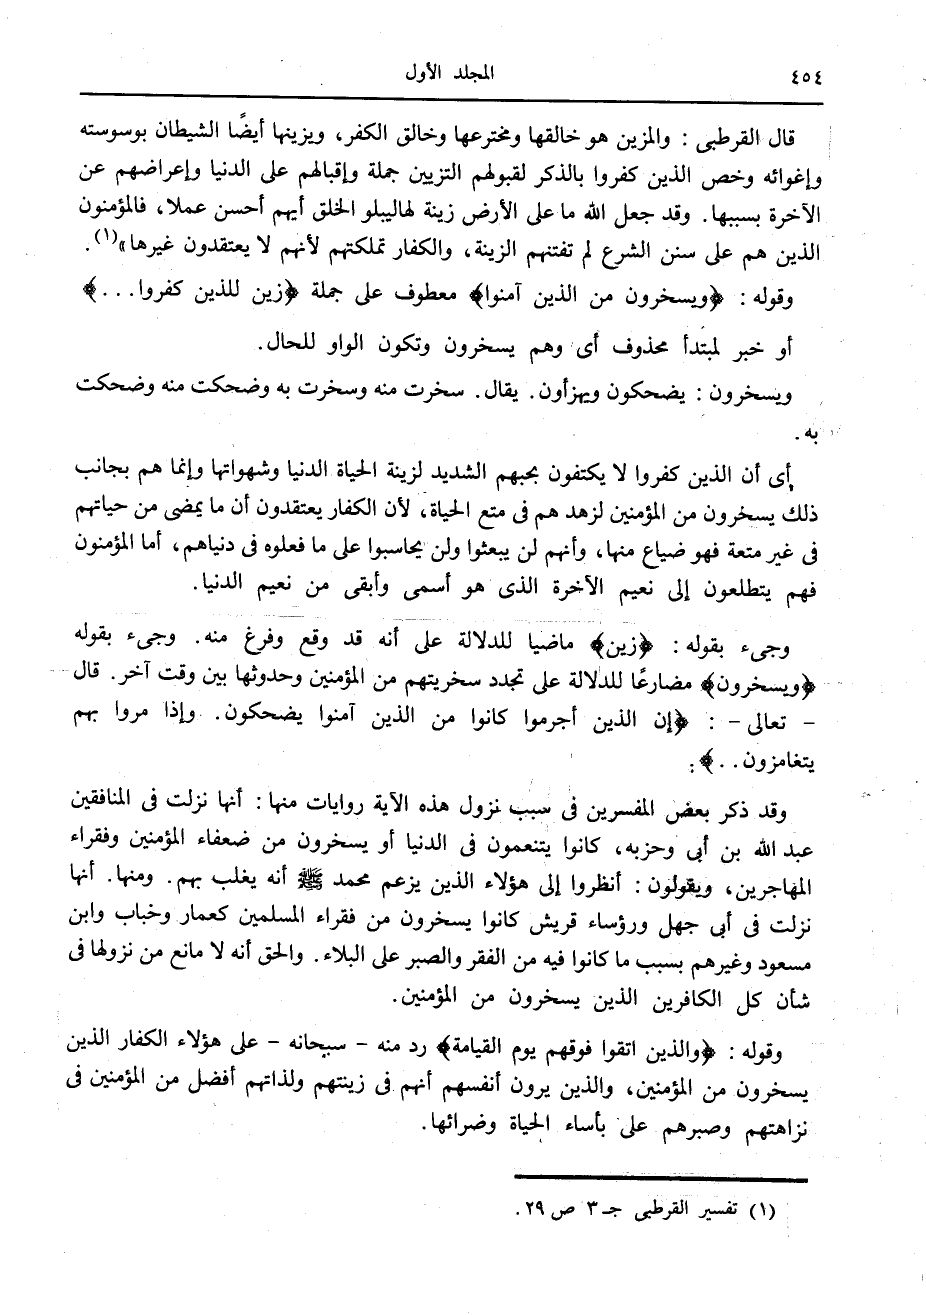 ٤٥٤
المجلد الأول
قال القرطبى : والمزين هو خالقها ومخترعها وخالق الكفر، ويزينها أيضًا الشيطان بوسوسته
وإغوائه وخص الذين كفروا بالذكر لقبولهم التزيين جملة وإقبالهم على الدنيا وإعراضهم عن
الآخرة بسببها. وقد جعل الله ما على الأرض زينة لهاليبلو الخلق أيهم أحسن عملا، فالمؤمنون
الذين هم على سنن الشرع لم تفتنهم الزينة، والكفار تملكتهم لأنهم لا يعتقدون غيرها»(١).
وقوله : ﴿ويسخرون من الذين آمنوا﴾ معطوف على جملة ﴿زين للذين كفروا...﴾
أو خبر لمبتدأ محذوف أى وهم يسخرون وتكون الواو للحال.
ويسخرون : يضحكون ويهزأون. يقال. سخرت منه وسخرت به وضحكت منه وضحكت
به.
أى أن الذين كفروا لا يكتفون بحبهم الشديد لزينة الحياة الدنيا وشهواتها وإنما هم بجانب
ذلك يسخرون من المؤمنين لزهد هم فى متع الحياة، لأن الكفار يعتقدون أن ما يمضى من حياتهم
فى غير متعة فهو ضياع منها، وأنهم لن يبعثوا ولن يحاسبوا على ما فعلوه فى دنياهم، أما المؤمنون
فهم يتطلعون إلى نعيم الآخرة الذى هو أسمى وأبقى من نعيم الدنيا.
وجىء بقوله : ﴿زين﴾ ماضيا للدلالة على أنه قد وقع وفرغ منه. وجىء بقوله
﴿ويسخرون﴾ مضارعًا للدلالة على تجدد سخريتهم من المؤمنين وحدوثها بين وقت آخر. قال
- تعالى - : ﴿إن الذين أجرموا كانوا من الذين آمنوا يضحكون. وإذا مروا بهم
يتغامزون..﴾:
وقد ذكر بعض المفسرين فى سبب نزول هذه الآية روايات منها : أنها نزلت فى المنافقين
عبد الله بن أبي وحزبه، كانوا يتنعمون فى الدنيا أو يسخرون من ضعفاء المؤمنين وفقراء
المهاجرين، ويقولون : أنظروا إلى هؤلاء الذين يزعم محمد ﷺ أنه يغلب بهم. ومنها. أنها
نزلت فى أبي جهل ورؤساء قريش كانوا يسخرون من فقراء المسلمين كعمار وخباب وابن
مسعود وغيرهم بسبب ما كانوا فيه من الفقر والصبر على البلاء. والحق أنه لا مانع من نزولها فى
شأن كل الكافرين الذين يسخرون من المؤمنين.
وقوله : ﴿والذين اتقوا فوقهم يوم القيامة﴾ رد منه - سبحانه - على هؤلاء الكفار الذين
يسخرون من المؤمنين، والذين يرون أنفسهم أنهم فى زينتهم ولذاتهم أفضل من المؤمنين فى
نزاهتهم وصبرهم على بأساء الحياة وضرائها.
(١) تفسير القرطبى جـ ٣ ص ٢٩.